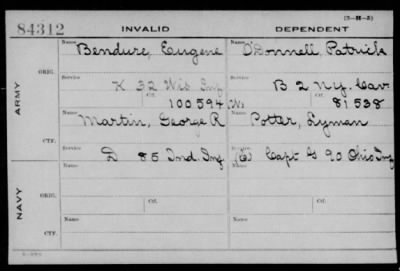 (3-H-3)
84312 INVALID DEPENDENT
Name Bendure, Eugene Name O'Donnell, Patrick
ARMY
ORIG. Service K 32 Wis Inf Service B 2 N.Y. Cav
Ctf. 100594 Ctf. 81538
Name Martin, George R Name Potter, Lyman
CTF. Service D 85 Ind. Inf Service Capt G 90 Ohio Inf
NAVY
Name Name
ORIG. Ctf. Ctf.
Name Name
CTF.